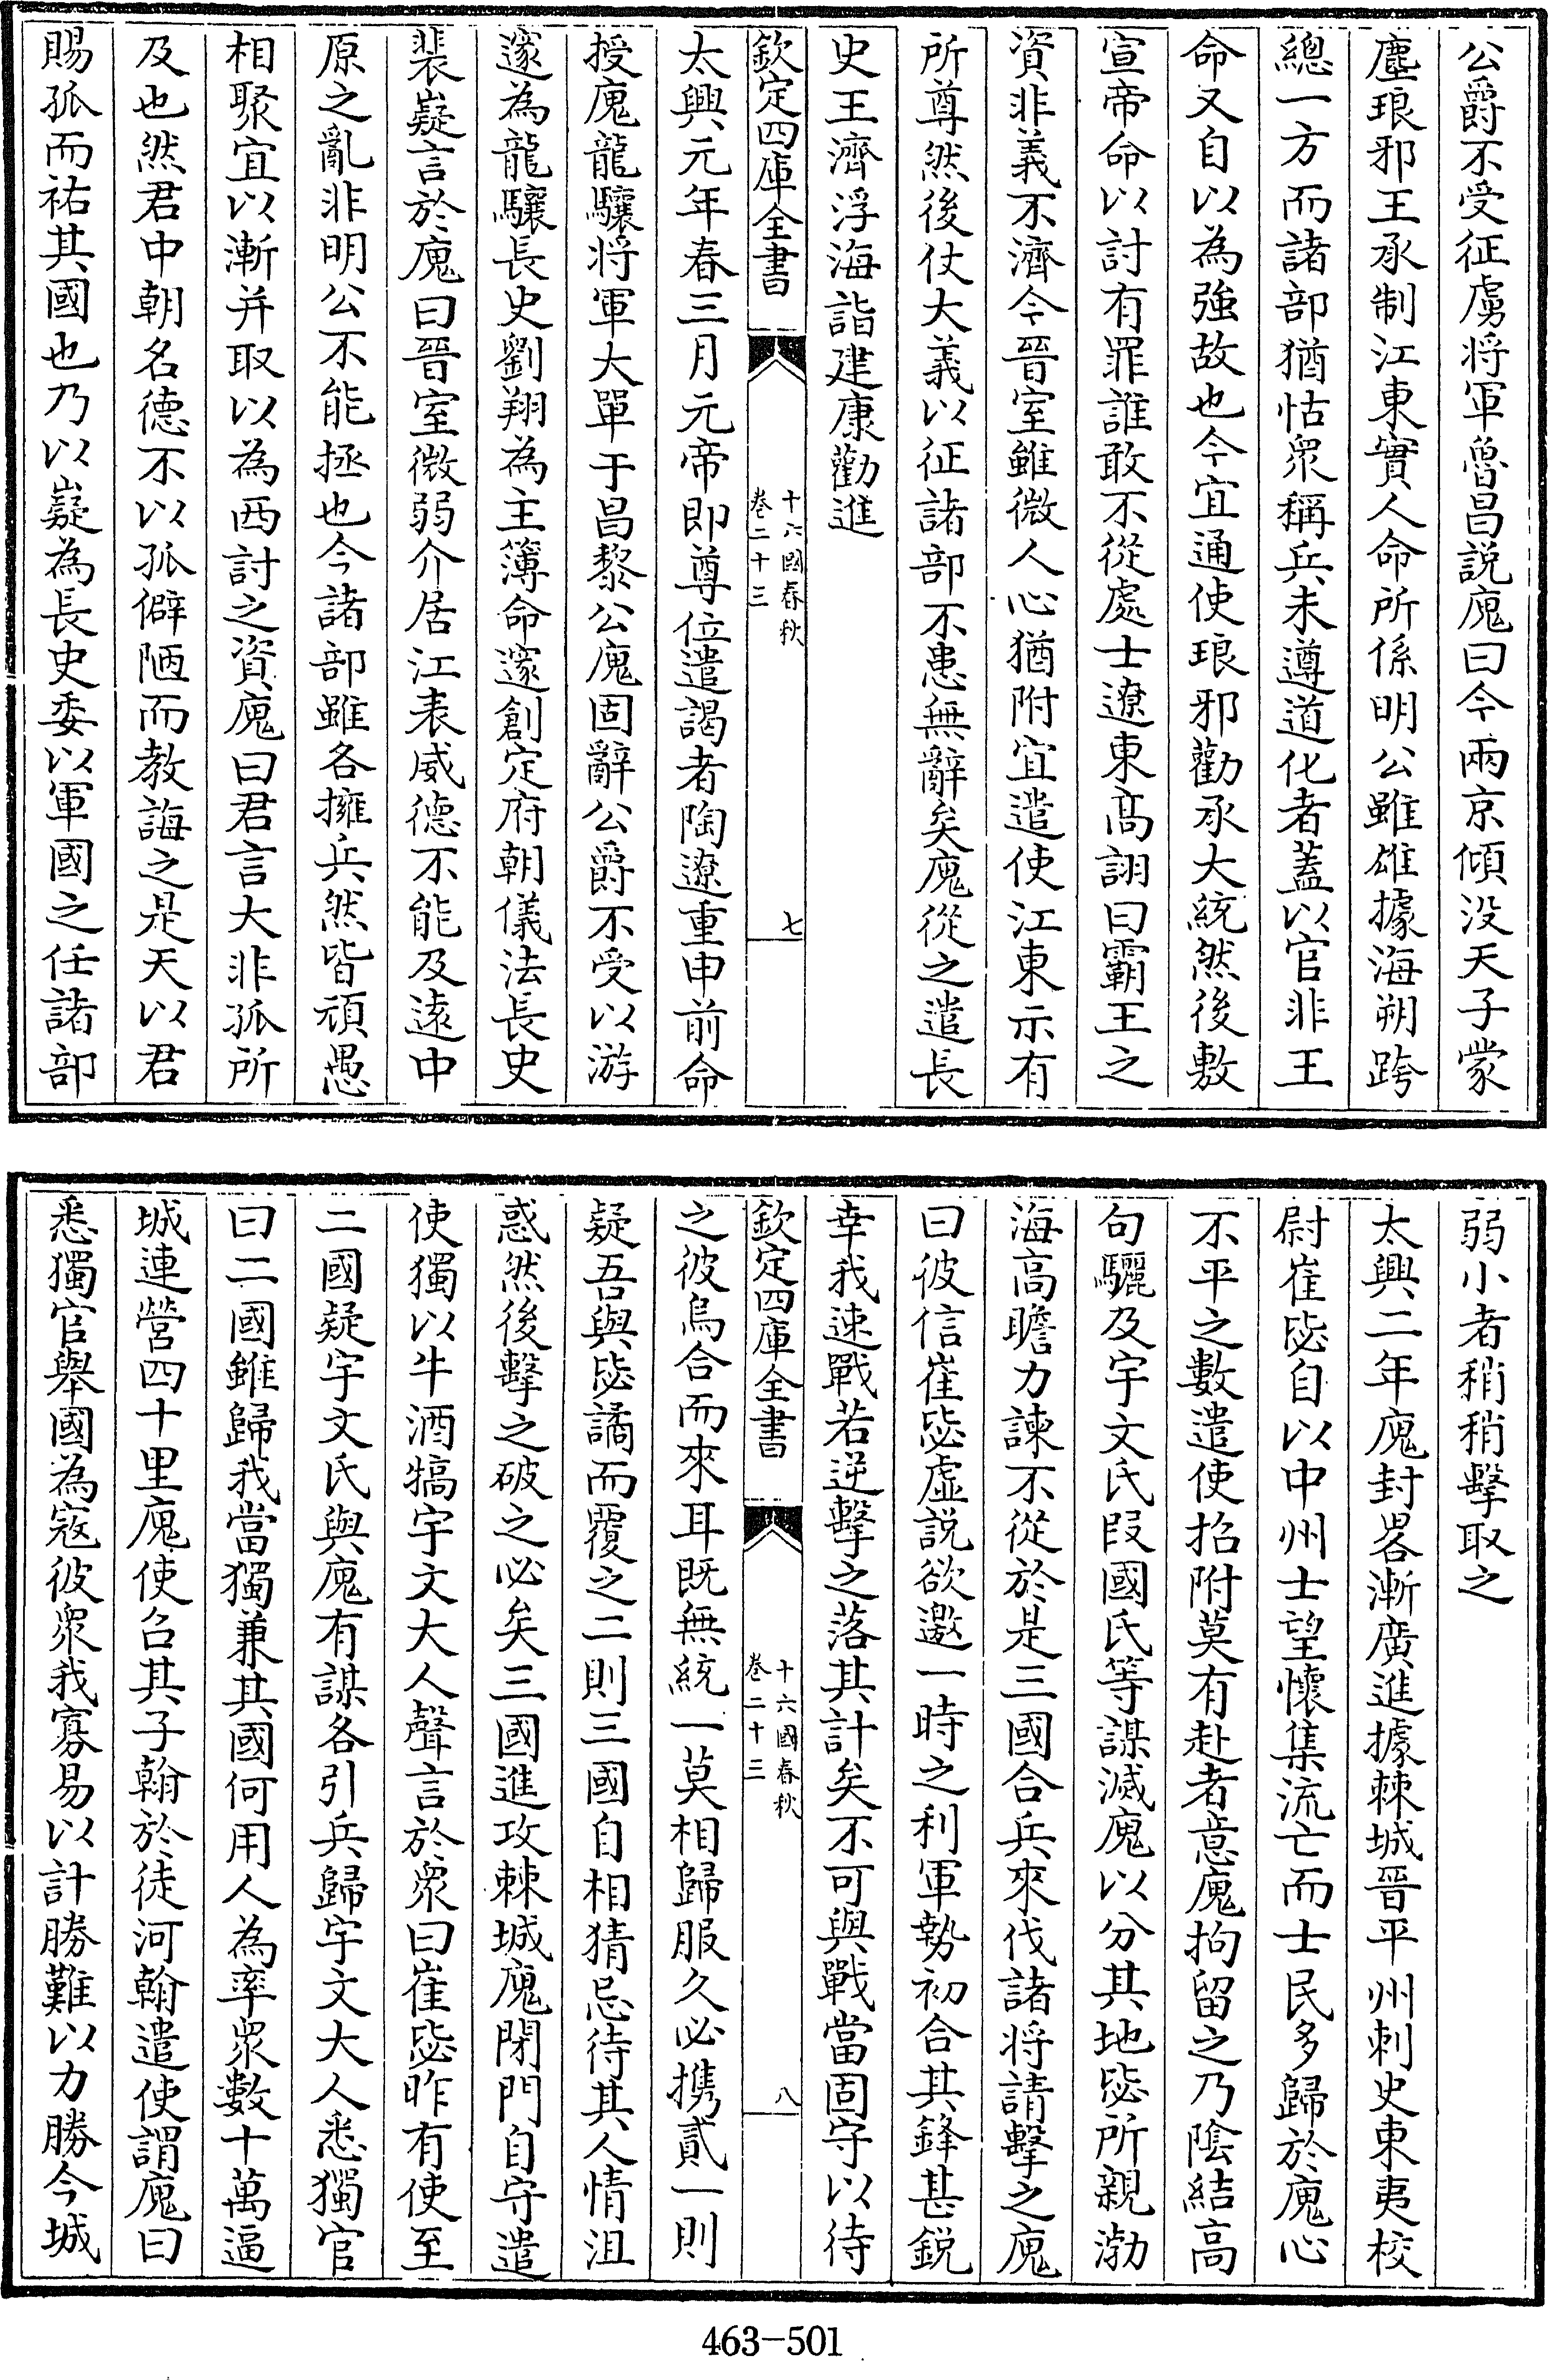 公爵不受征虜将軍魯昌說廆曰今兩京傾没天子蒙
塵琅邪王承制江東實人命所係明公雖雄據海朔跨
總一方而諸部猶怙衆稱兵未遵道化者蓋以官非王
命又自以為強故也今宜通使琅邪勸承大統然後敷
宣帝命以討有罪誰敢不從處士遼東髙詡曰霸王之
資非義不濟今晉室雖微人心猶附宜遣使江東示有
所尊然後仗大義以征諸部不患無辭矣廆從之遣長
史王濟浮海詣建康勸進
欽定四庫全書
十六國春秋
卷二十三
七
太興元年春三月元帝即尊位遣謁者陶遼重申前命
授廆龍驤将軍大單于昌黎公廆固辭公爵不受以游
邃為龍驤長史劉翔為主簿命邃創定府朝儀法長史
裴嶷言於廆曰晉室微弱介居江表威德不能及逺中
原之亂非明公不能拯也今諸部雖各擁兵然皆頑愚
相聚宜以漸并取以為西討之資廆曰君言大非孤所
及也然君中朝名德不以孤僻陋而教誨之是天以君
賜孤而祐其國也乃以嶷為長史委以軍國之任諸部
弱小者稍稍擊取之
太興二年廆封畧漸廣進據棘城晉平州刺史東夷校
尉崔毖自以中州士望懷集流亡而士民多歸於廆心
不平之數遣使招附莫有赴者意廆拘留之乃陰結高
句驪及宇文氏段國氏等謀滅廆以分其地毖所親渤
海高瞻力諫不從於是三國合兵來伐諸将請擊之廆
曰彼信崔毖虛說欲邀一時之利軍勢初合其鋒甚鋭
幸我速戰若逆擊之落其計矣不可與戰當固守以待
欽定四庫全書
十六國春秋
卷二十三
八
之彼烏合而來耳既無統一莫相歸服久必携貳一則
疑吾與毖譎而覆之二則三國自相猜忌待其人情沮
惑然後擊之破之必矣三國進攻棘城廆閉門自守遣
使獨以牛酒犒宇文大人聲言於衆曰崔毖昨有使至
二國疑宇文氏與廆有謀各引兵歸宇文大人悉獨官
曰二國雖歸我當獨兼其國何用人為率衆數十萬逼
城連營四十里廆使召其子翰於徒河翰遣使謂廆曰
悉獨官舉國為寇彼衆我寡易以計勝難以力勝今城
463-501